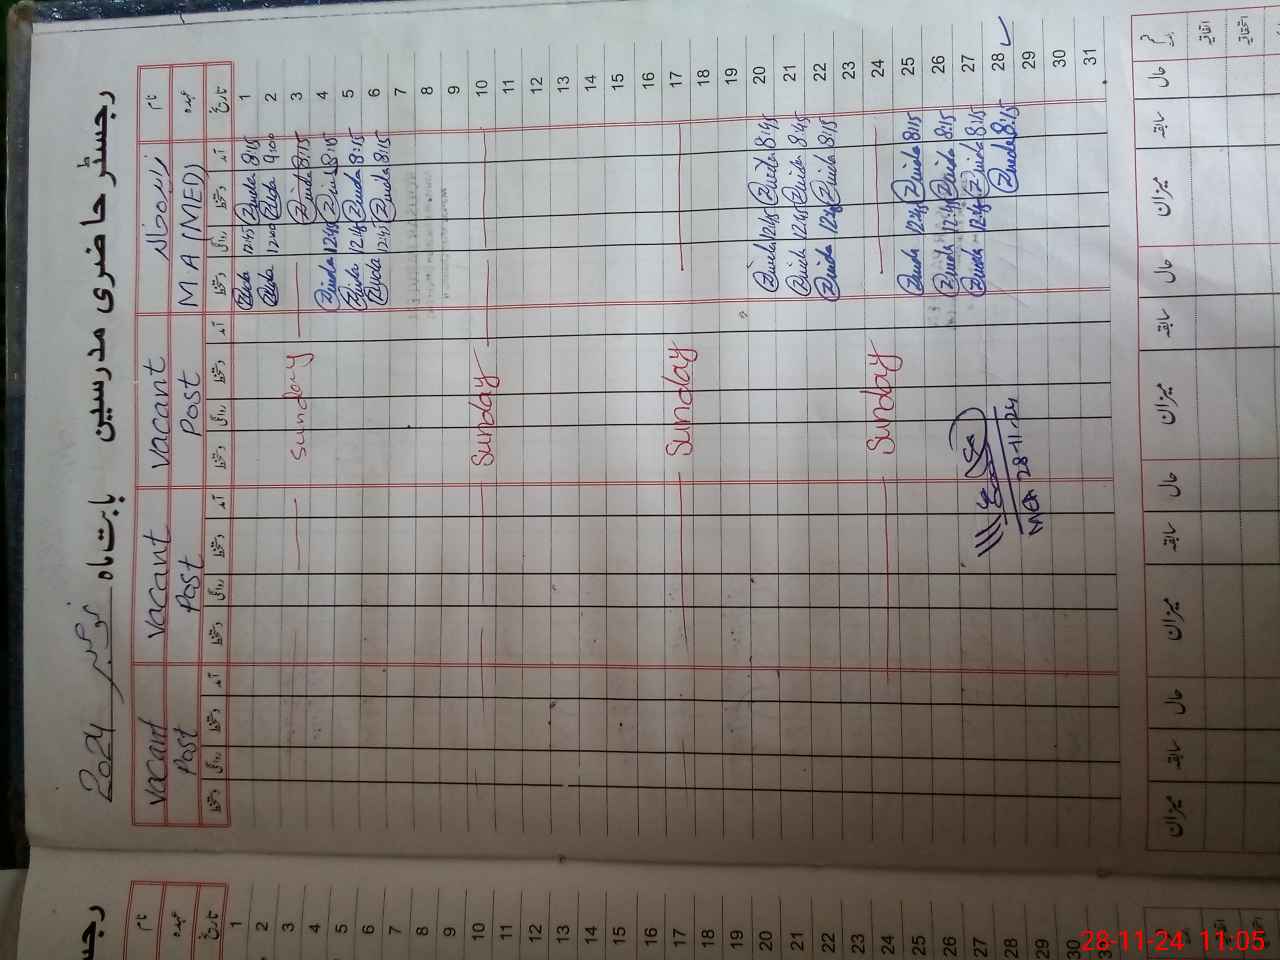 رجسٹر حاضری مدرسین بابت ماہ نومبر 2024
نام Vacant Vacant Vacant
عہدہ M A (MED) Post Post Post
تاریخ آمد دستخط روانگی دستخط آمد دستخط روانگی دستخط آمد دستخط روانگی دستخط آمد دستخط روانگی دستخط
1 8:15 Zuda 12:45 Zuda
2 9:00 Zuda 12:00 Zuda
3 8:15 Zuda Sunday
4 8:15 Zuda 12:45 Zuda
5 8:15 Zuda 12:45 Zuda
6 8:15 Zuda 12:45 Zuda
7
8
9
10 Sunday
11
12
13
14
15
16
17 Sunday
18
19
20 8:45 Zuda 12:45 Zuda
21 8:45 Zuda 12:45 Zuda
22 8:15 Zuda 12:45 Zuda
23
24 Sunday
25 8:15 Zuda 12:45 Zuda
26 8:15 Zuda 12:45 Zuda
27 8:15 Zuda 12:45 Zuda
28 8:15 Zuda
MEA 28-11-24
29
30
31
حال سابقہ میزان حال سابقہ میزان حال سابقہ میزان حال سابقہ میزان
اتفاقیہ
رجس
نام
عہدہ
تاریخ
1
2
3
4
5
6
7
8
9
10
11
12
13
14
15
16
17
18
19
20
21
22
23
24
25
26
27
28
29
30
3
28-11-24 11:05